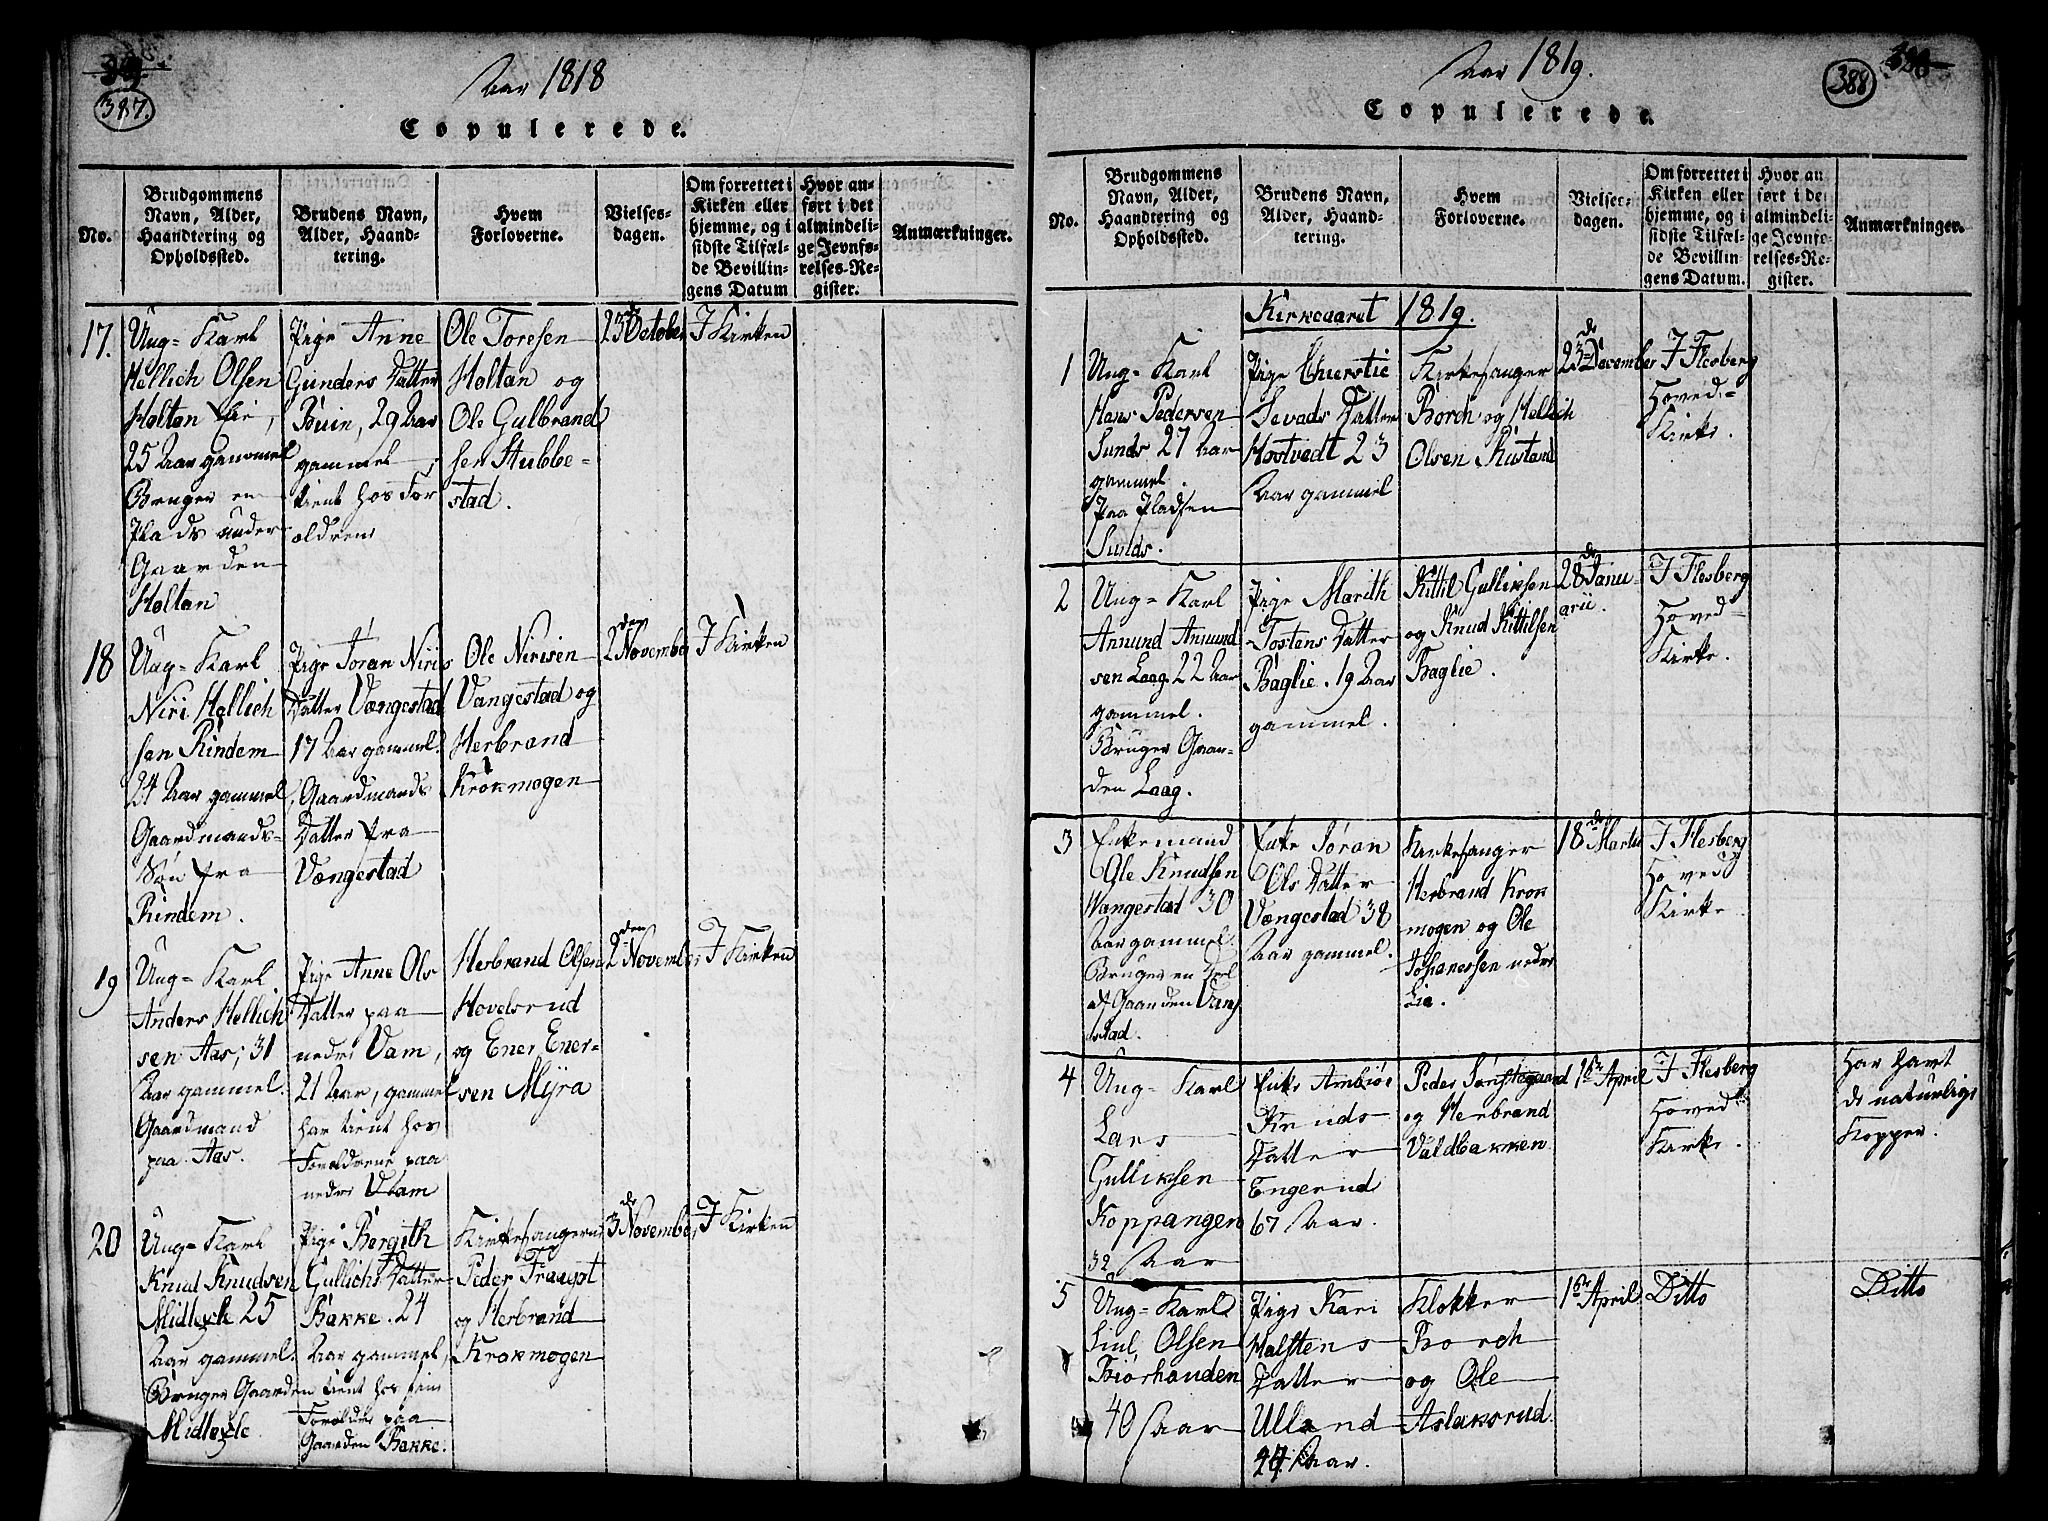 387.
Aar 1818
Copulerede.
No.
Brudgommens
Navn, Alder,
Haandtering og
Opholdssted.
Brudens Navn,
Alder, Haand-
tering.
Hvem
Forloverne.
Vielses-
dagen.
Om forrettet i
Kirken eller
hjemme, og i
sidste Tilfæl-
de Bevillin-
gens Datum
Hvor an-
ført i det
almindeli-
ge Jevnfø-
relses-Re-
gister.
Anmærkninger.
17.
Ung-Karl
Hellich Olsen
Holtan
25 Aar gammel
Bruger en
Plads under
Gaarden
Holtan
Pige Anne
Gunders Datter
Bruin, 29 Aar
gammel
tient hos For
ældrene
Ole Toresen
Holtan og
Ole Gulbrand
sen Stubbe-
stad.
23 October
I Kirken
18
Ung-Karl
Niri Hellich
sen Rindem
24 Aar gammel
Gaardmands-
Søn fra
Rindem.
Pige Joran Niris
Datter Vængestad
17 Aar gammel.
Gaardmands
Datter fra
Vængestad
Ole Nirisen
Vangestad og
Herbrand
Krokmogen
2 den November
I Kirken
19
Ung-Karl
Anders Hellich
sen Aas, 31
Aar gammel.
Gaardmand
paa Aas.
Pige Anne Ols
Datter paa
nedre Vam,
21 Aar, gammel
har tient hos
Forældrene paa
nedre Vam
Herbrand Olsen
Hovelsrud
og Ener Ener-
sen Myra
2 den November
I Kirken
20
Ung-Karl
Knud Knudsen
Midleyle 25
Aar gammel.
Bruger Gaarden
Midleyle
Pige Bergith
Gullichs Datter
Bakke. 24
Aar gammel,
tient hos sine
Forældre paa
Gaarden Bakke.
Kirkesangeren
Peder Traagst
og Herbrand
Krokmogen
3 de November
I Kirken
388
Aar 1819.
Copulerede.
No.
Brudgommens
Navn, Alder,
Haandtering og
Opholdssted.
Brudens Navn,
Alder, Haand-
tering.
Hvem
Forloverne.
Vielses-
dagen.
Om forrettet i
Kirken eller
hjemme, og i
sidste Tilfæl-
de Bevillin-
gens Datum.
Hvor an
ført i det
almindeli-
ge Jevnfø-
relses-Re-
gister.
Anmærkninger.
Kirkeaaret 1819.
1
Ung-Karl
Hans Pedersen
Sunds 27 Aar
gammel.
Paa Pladsen
Sunds.
Pige Chierstie
Sevads Datter
Hostvedt 23
Aar gammel
Kirkesanger
Borch og Hellich
Olsen Rustand
23 de December
I Flesberg
Hoved-
Kirke.
2
Ung-Karl
Amund Amund
sen Laag 22 Aar
gammel.
Bruger Gaar-
den Laag.
Pige Marith
Tostens Datter
Baglie. 19 Aar
gammel.
Kittil Gulliksen
og Knud Kittilsen
Baglie.
28 de Janu-
arii.
I Flesberg
Hoved-
Kirke.
3
Enkemand
Ole Knudsen
Wangestad 30
Aar gammel.
Bruger en Deel
af Gaarden Vang
stad.
Enke Joran
Ols Datter
Vængestad 38
Aar gammel.
Kirkesanger
Herbrand Krok
mogen og Ole
Johanessen nedre
Lia.
18 de Martii
I Flesberg
Hoved
Kirke
4
Ung-Karl
Lars
Gulliksen
Koppangen
32 Aar
Enke Ambiør
Knuds
Datter
Engerud
67 Aar.
Peder Sønstegaard
og Herbrand
Valdbakken
1ste April
I Flesberg
Hoved
Kirke.
Har havt
de naturlige
Kopper.
5
Ung-Karl
Siul Olsen
Biørhauden
40 Aar
Pige Kari
Halstens
Datter
Ulland
24 Aar.
Klokker
Borch
og Ole
Aslaksrud.
1ste April
Ditto
Ditto